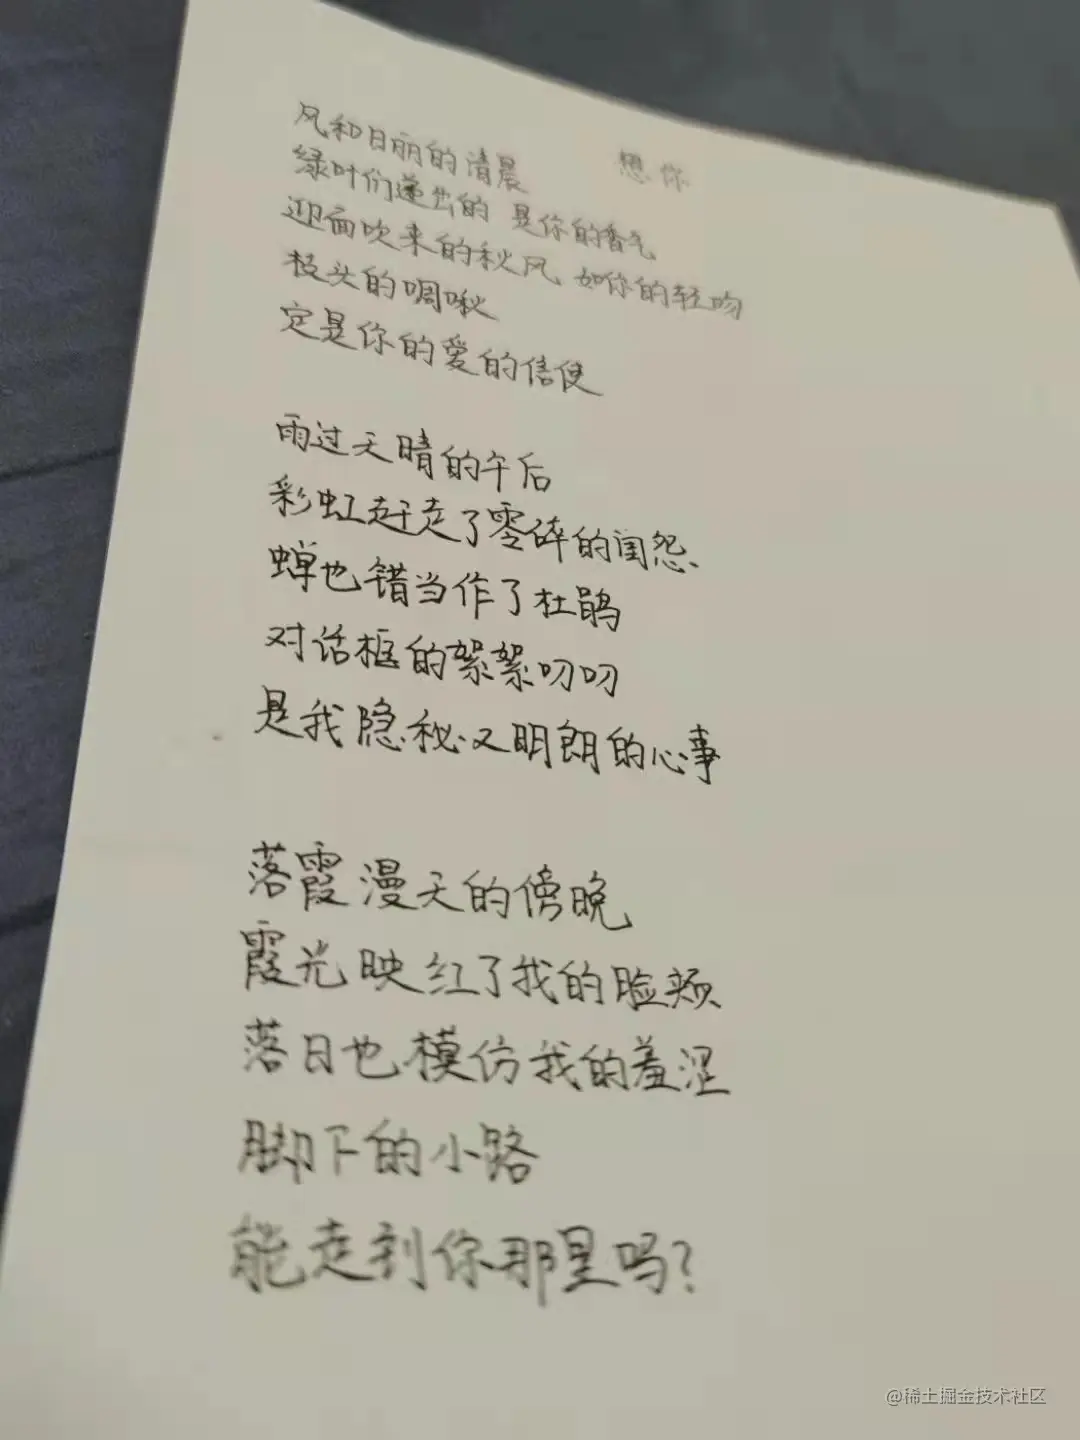 想你
风和日丽的清晨
绿叶们递出的 是你的香气
迎面吹来的秋风 如你的轻吻
枝头的啁啾
定是你的爱的信使
雨过天晴的午后
彩虹赶走了零碎的闺怨
蝉也错当作了杜鹃
对话框的絮絮叨叨
是我隐秘又明朗的心事
落霞漫天的傍晚
霞光映红了我的脸颊
落日也模仿我的羞涩
脚下的小路
能走到你那里吗？
@稀土掘金技术社区